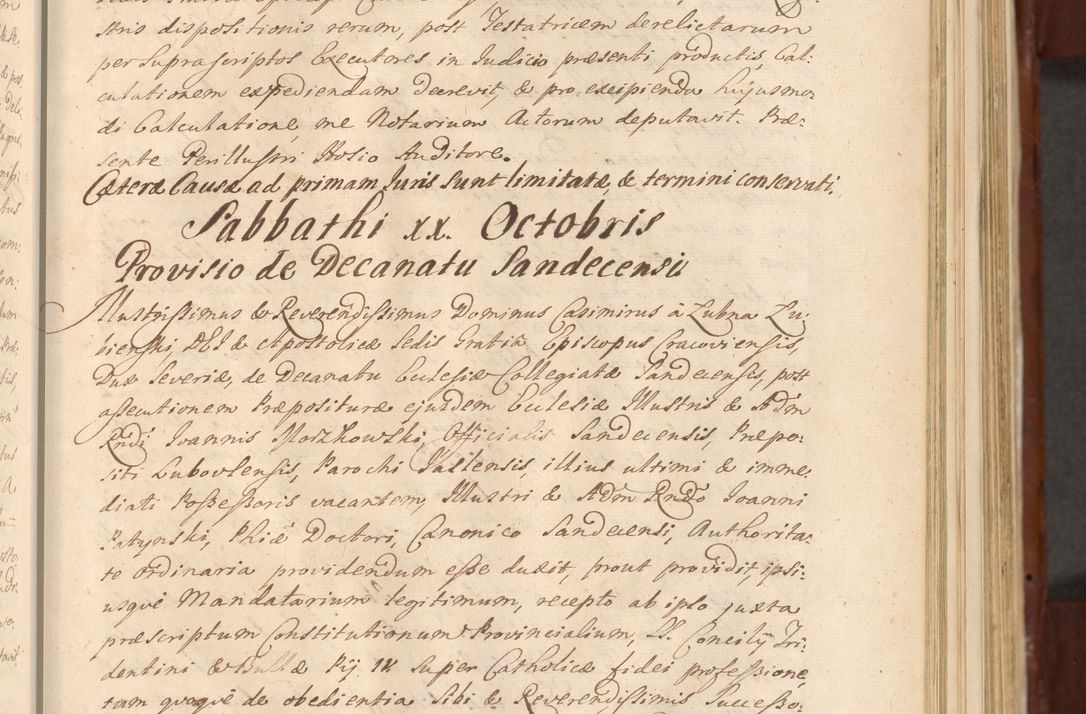 stris dispositionis rerum, post Testatricem derelictarum
per supra scriptos Executores in Iudicio præsenti productis, Cal:
culationem expediendam decrevit, & pro excipienda hujusmo:
di Calculatione me Notarium Actorum deputavit. Præ:
sente Perillustri Hosio Auditore.
Cæteræ Causæ ad primam Iuris sunt limitatæ, & termini conservati.
Sabbathi xx. Octobris
Provisio de Decanatu Sandecensi
Illustrissimus & Reverendissimus Dominus Casimirus à Lubna Lu:
bienski, DEI & Apostolicæ Sedis Gratiâ Episcopus Cracoviensis,
Dux Severiæ, de Decanatu Ecclesiæ Collegiatæ Sandecensis, post
assecutionem Præposituræ ejusdem Ecclesiæ Illustris & Adm
Rndi Ioannis Moszkowski, Officialis Sandecensis, Præpo:
siti Lubovlensis, Parochi Jaslensis, illius ultimi & imme
diati Possessoris vacantem, Illustri & Adm Rndo Ioanni
Ratynski, Phiæ Doctori, Canonico Sandecensi, Authorita:
te ordinaria providendum esse duxit, prout providit, ipsi:
usquè Mandatarium legitimum, recepto ab ipso juxta
præscriptum Constitutionum Provincialium, SS. Concilij Tri:
dentini & Bullæ Pij IV super Catholicæ fidei professione,
tam quoquè de obedientia Sibi & Reverendissimis Successo: